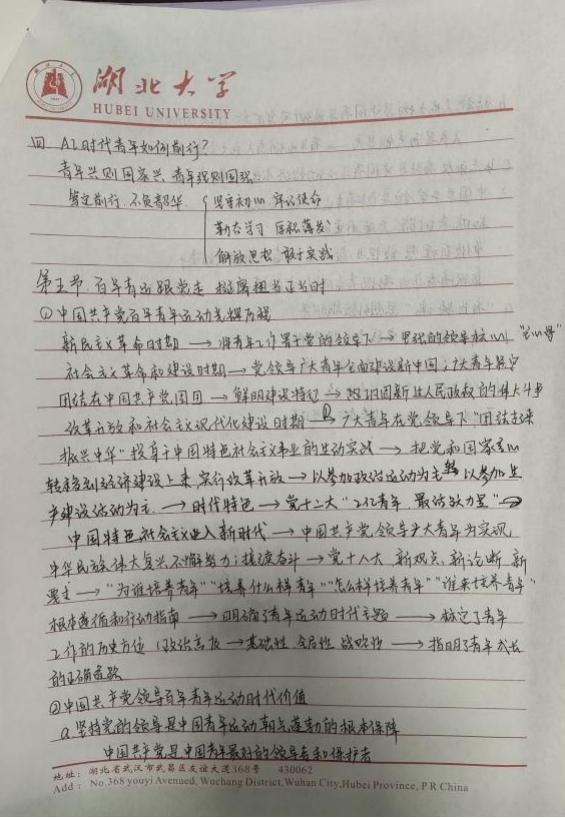 湖北大学
HUBEI UNIVERSITY
四 AI时代青年如何前行?
青年兴则国家兴 青年强则国强
笃定前行 不负韶华 坚守初心 牢记使命
勤奋学习 厚积薄发
解放思想 敢于实践
第五节 百年青运跟党走 挺膺担当正当时
①中国共产党百年青年运动光辉历程
新民主义革命时期 → 将青年工作置于党的领导下 → 坚强的领导核心
社会主义革命和建设时期 → 党领导广大青年全面建设新中国;广大青年
团结在中国共产党周围 → 鲜明建设特征 → 巩固新生人民政权的伟大斗争
改革开放和社会主义现代化建设时期 → 广大青年在党领导下"团结起来
振兴中华"投身于中国特色社会主义事业的生动实践 → 把党和国家重心
转移到经济建设上来,实行改革开放 → 以参加政治运动为主转 以参加生
产建设活动为主 → 时代特色 → 党十二大"2亿青年 最活跃力量" →
中国特色社会主义进入新时代 → 中国共产党领导广大青年为实现
中华民族伟大复兴不懈努力;接续奋斗 → 党十八大 新观点、新论断 新
要求 → "为谁培养青年""培养什么样青年""怎么样培养青年""谁来培养青年"
根本遵循和行动指南 → 明确了青年运动时代主题 → 标定了青年
工作的历史方位(政治高度 → 基础性 全局性 战略性 → 指明了青年成长
的正确道路
②中国共产党领导百年青年运动时代价值
a.坚持党的领导是中国青年运动朝气蓬勃的根本保障
中国共产党是中国青年最好的领导者和保护者
地址:湖北省武汉市武昌区友谊大道368号 430062
Add: No.368 youyi Avenued, Wuchang District,Wuhan City,Hubei Province, P R China